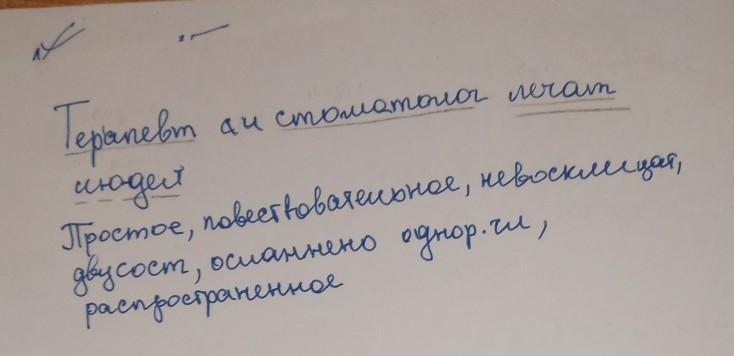 Терапевт а и стоматолог лечат
людей
Простое, повествовательное, невосклицат,
двусост, осланнено однор. чл,
распространенное